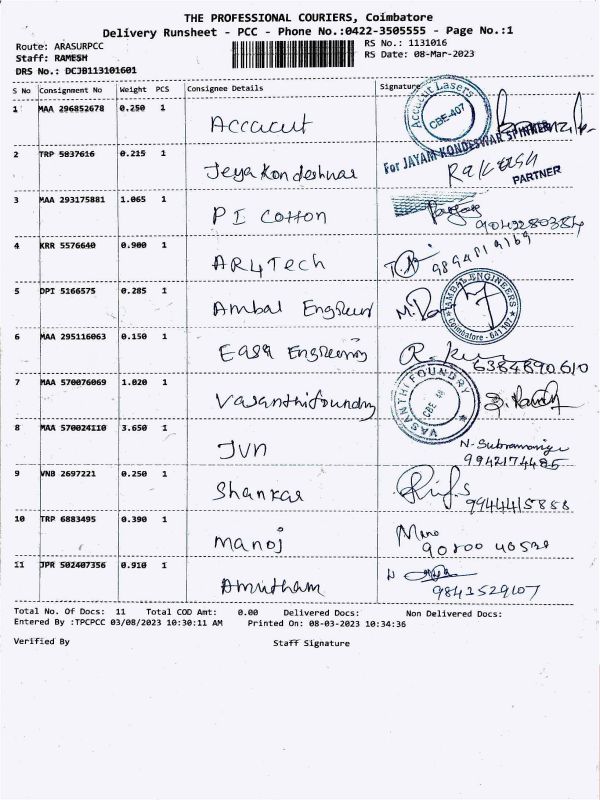 THE PROFESSIONAL COURIERS, Coimbatore
Delivery Runsheet - PCC - Phone No.:0422-3505555 - Page No.:1
Route: ARASURPCC RS No.: 1131016
Staff: RAMESH RS Date: 08-Mar-2023
DRS No.: DCJB113101601
S No Consignment No Weight PCS Consignee Details Signature
1 MAA 296852678 0.250 1 Accacut Accacut Lasers CBE-407
2 TRP 5837616 0.215 1 Jeya Kondeshwar For JAYAM KONDESWAR SPINNERS Rakesh PARTNER
3 MAA 293175881 1.065 1 PI Cotton 9042280384
4 KRR 5576640 0.900 1 AR4Tech 9894819169
5 DPI 5166575 0.285 1 Ambal Engineer AMBAL ENGINEERS Coimbatore - 641 107
6 MAA 295116063 0.150 1 Easa Engineering 6384890610
7 MAA 570076069 1.020 1 Vasanthifoundry VASANTHI FOUNDRY CBE
8 MAA 570024110 3.650 1 JVN N. Subramaniya 9942174485
9 VNB 2697221 0.250 1 Shankar 9944415888
10 TRP 6883495 0.390 1 Manoj Mano
11 JPR 502407356 0.910 1 Amutham 9843529107
Total No. Of Docs: 11 Total COD Amt: 0.00 Delivered Docs: Non Delivered Docs:
Entered By :TPCPCC 03/08/2023 10:30:11 AM Printed On: 08-03-2023 10:34:36
Verified By Staff Signature